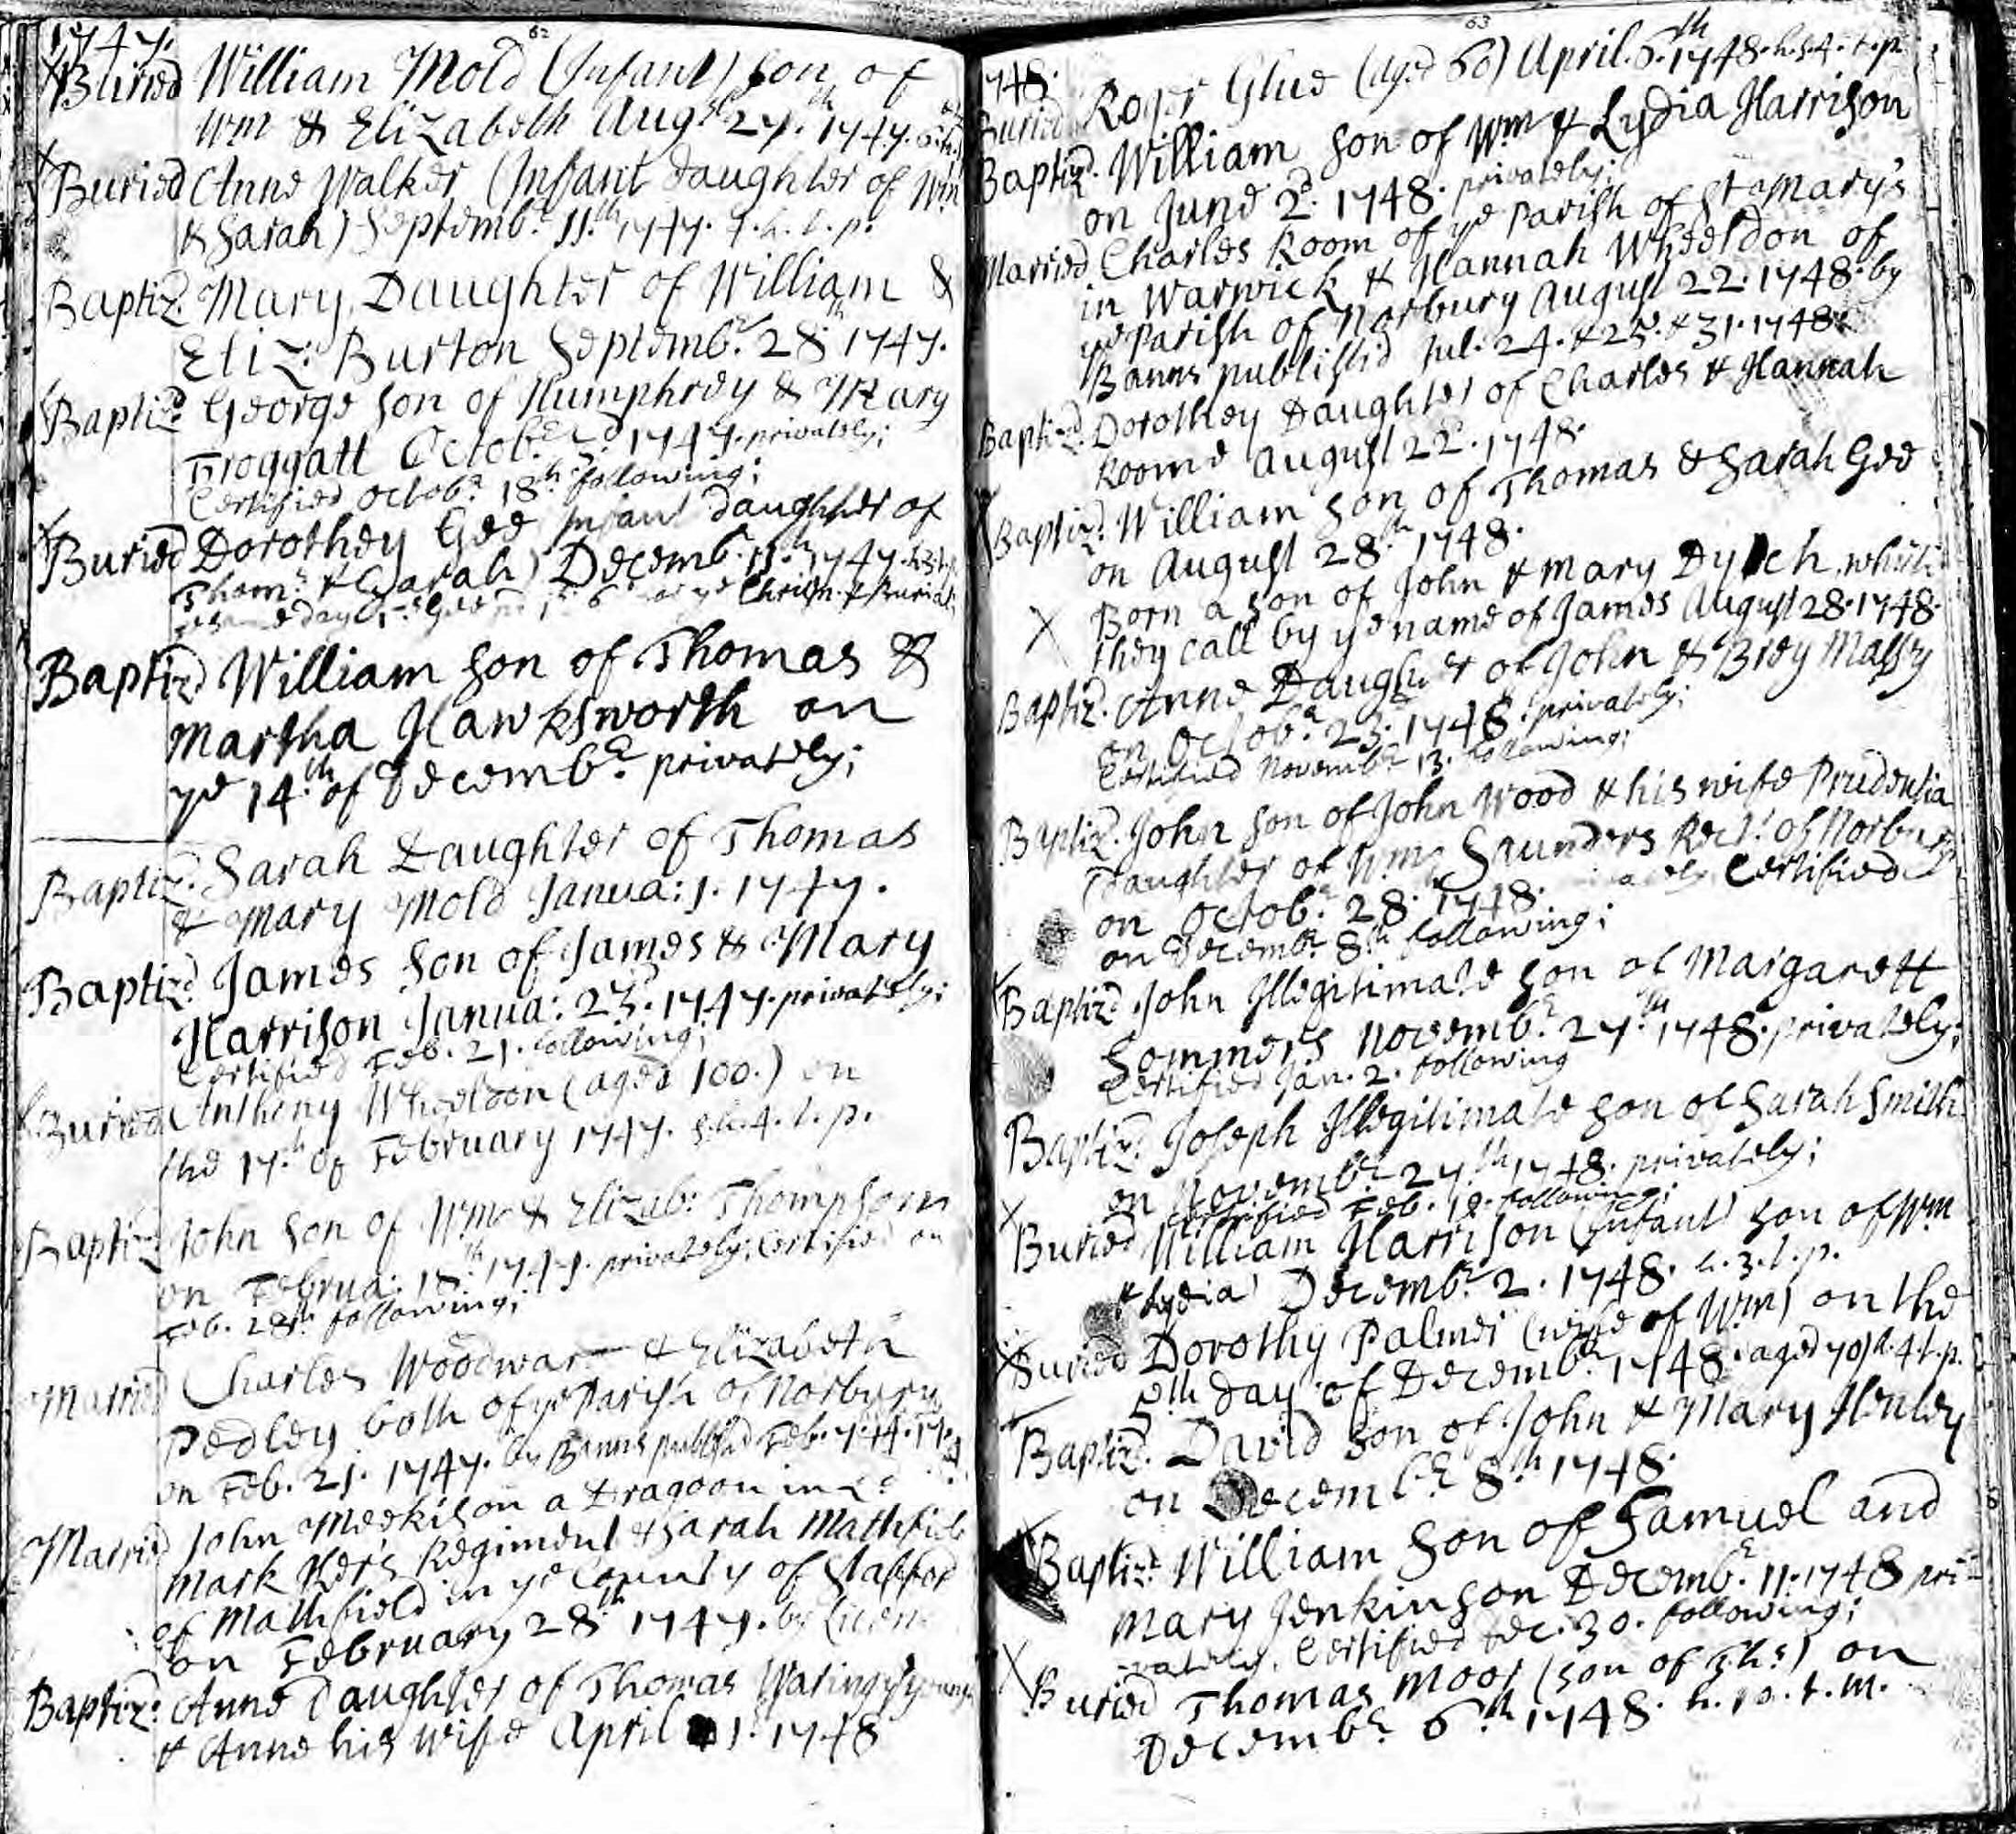 62
1747.
Buried William Mold (Infant) son of
Wm & Elizabeth Augst 27th 1747.
Buried Anne Walker (Infant Daughter of Wm
& Sarah) Septembr 11th 1747. 4. h. t. p.
Baptizd Mary Daughter of William &
Eliz: Burton Septembr 28th 1747.
Baptizd George son of Humphrey & Mary
Froggatt Octobr 1747. privately;
Certified Octobr 18th following;
Buried Dorothey Gee Infant daughter of
Thoms & Sarah) Decembr 11th 1747.
Baptizd William son of Thomas &
Martha Hawksworth on
ye 14th of Decembr privately;
Baptizd Sarah Daughter of Thomas
& Mary Mold Janua: 1. 1747.
Baptizd James son of James & Mary
Harrison Janua: 23d 1747. privately;
Certified Feb. 21. following;
Buried Anthony Wheeldon (aged 100.) on
the 17th of February 1747. h. 4. t. p.
Baptizd John son of Wm & Elizab: Thompson
on Februa: 18th 1747. privately; Certified on
Feb. 28th following;
Married Charles Woodward & Elizabeth
Pedley both of ye Parish of Norbury
on Feb. 21. 1747. by Banns publishd Feb. 7. 14.
Married John Meekison a Dragoon in
Mark Kers Regiment & Sarah Mathfield
of Mathfield in ye County of Stafford
on February 28th 1747. by
Baptizd Anne Daughter of Thomas Waring ye younger
& Anne his wife April 1. 1748
63
1748.
Buried Roger Glue (aged 60) April. 6th 1748. h. 4. t. p.
Baptizd William son of Wm & Lydia Harrison
on June 2d 1748. privately;
Married Charles Room of ye parish of St Mary's
in Warwick & Hannah Wheeldon of
ye Parish of Norbury August 22. 1748. by
Banns publishd Jul. 24. & 25. & 31. 1748.
Baptizd Dorothey Daughter of Charles & Hannah
Roome August 22d 1748.
Baptizd William son of Thomas & Sarah Gee
on August 28th 1748.
Born a son of John & Mary Dytch which
they call by ye name of James August 28. 1748.
Baptizd Anne Daughter of John & Bidy Massy
on Octobr 23. 1748. privately;
Certified Novembr 13. following;
Baptizd John son of John Wood & his wife Prudentia
Daughter of Wm Saunders Rectr of Norbury
on Octobr 28. 1748. privately Certified
on Decembr 8th following;
Baptizd John Illegitimate son of Margarett
Sommers Novembr 27th 1748. privately;
Certified Jan. 2. following
Baptizd Joseph Illegitimate son of Sarah Smith
on Novembr 27th 1748. privately;
Certified Feb. following;
Buried William Harrison (Infant) son of Wm
& Lydia Decembr 2. 1748. h. 3. t. p.
Buried Dorothy Palmer (wife of Wm) on the
5th day of Decembr 1748. aged 70 h. 4 t. p.
Baptizd David son of John & Mary Henley
on Decembr 8th 1748.
Baptizd William son of Samuel and
Mary Jenkinson Decembr 11. 1748 pri-
vately, Certified Dec. 30. following;
Buried Thomas Moor (son of Ths) on
Decembr 6th 1748. h. 10. t. m.